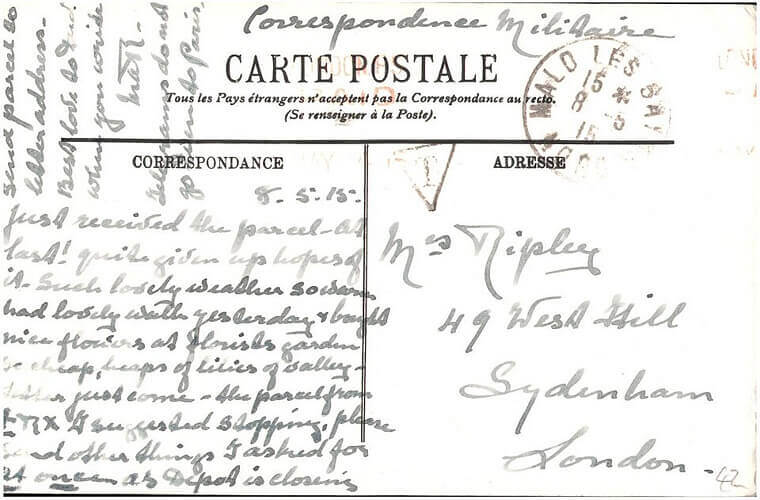 Correspondence Militaire
CARTE POSTALE
Tous les Pays étrangers n'acceptent pas la Correspondance au recto.
(Se renseigner à la Poste).
CORRESPONDANCE
ADRESSE
MALO LES BAINS
15
8 5
15
T
8.5.15.
Just received the parcel - at
last! quite given up hopes of
it - Such lovely weather so warm
had lovely walk yesterday & bought
nice flowers at florists garden
so cheap, heaps of lilies of valley -
letter just come - the parcel from
I suggested stopping, please
send other things I asked for
at once as Depot is closing
send parcel to
letter address -
Best love to
when you write
telegrams do not
go to Paris.
Mrs Ripley
49 West Hill
Sydenham
London -
42